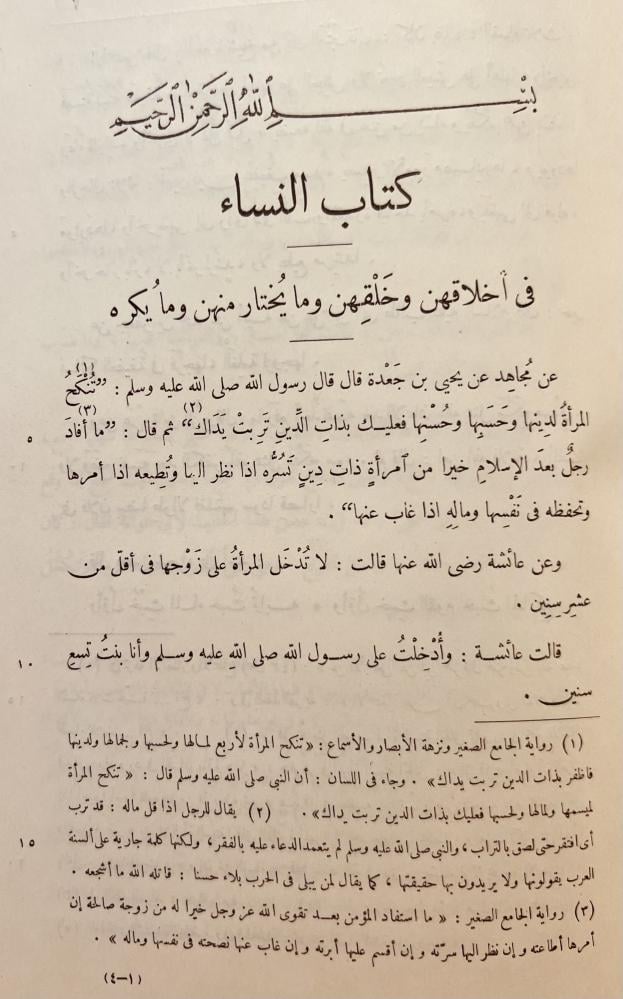 بِسْمِ اللهِ الرَّحْمٰنِ الرَّحِيْمِ
كتاب النساء
فى أخلاقهن وخَلْقِهن وما يُختار منهن وما يُكره
عن مُجاهِد عن يحيى بن جَعْدة قال قال رسول الله صلى الله عليه وسلم : ”تُنْكَحُ (١)
المرأةُ لدِينها وحَسَبِها وحُسْنِها فعليـك بذاتِ الدِّينِ تَرِبتْ يَدَاك“ (٢) ثم قال : ”ما أفادَ (٣) ٥
رجلٌ بعدَ الإسلامِ خيرا من آمرأةٍ ذاتِ دِينٍ تَسُرُّه اذا نظر اليها وتُطِيعه اذا أمرها
وتحفظه فى نَفْسِها ومالِهِ اذا غاب عنها“ .
وعن عائشة رضى الله عنها قالت : لا تُدْخَل المرأةُ على زَوْجها فى أقلّ من
عشرِ سِنِين .
قالت عائشــة : وأُدْخِلْتُ على رســول الله صلى اللهِ عليه وســلم وأنا بنتُ تِسعِ ١٠
سنين .
(١) رواية الجامع الصغير ونزهة الأبصار والأسماع : « تنكح المرأة لأربع لمـالها ولحسبها ولجمالها ولدينها
فاظفر بذات الدين تربت يداك» . وجاء فى اللسان : أن النبي صلى الله عليه وسلم قال : « تنكح المرأة
لميسمها ولمالها ولحسبها فعليك بذات الدين تربت يداك» . (٢) يقال للرجل اذا قل ماله : قد ترب
أى افتقر حتى لصق بالتراب ، والنبي صلى الله عليه وسلم لم يتعمد الدعاء عليه بالفقر ، ولكنها كلمة جارية على ألسنة ١٥
العرب يقولونها ولا يريدون بها حقيقتها ، كما يقال لمن يبلى فى الحرب بلاء حسنا : قاتله الله ما أشجعه .
(٣) رواية الجامع الصغير : « ما استفاد المؤمن بعـد تقوى الله عز وجل خيرا له من زوجة صالحة إن
أمرها أطاعته وإن نظر اليها سرّته وإن أقسم عليها أبرته وإن غاب عنها نصحته فى نفسها وماله » .
(٤-١)